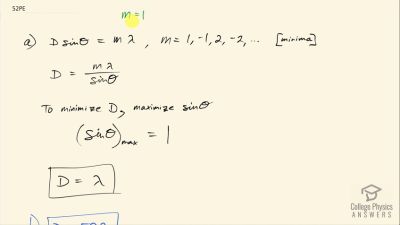 52PE
m = 1
a) D sinθ = m λ , m = 1, -1, 2, -2, ... [minima]
D = mλ / sinθ
To minimize D, maximize sinθ
(sinθ)max = 1
D = λ
COLLEGE PHYSICS
ANSWERS